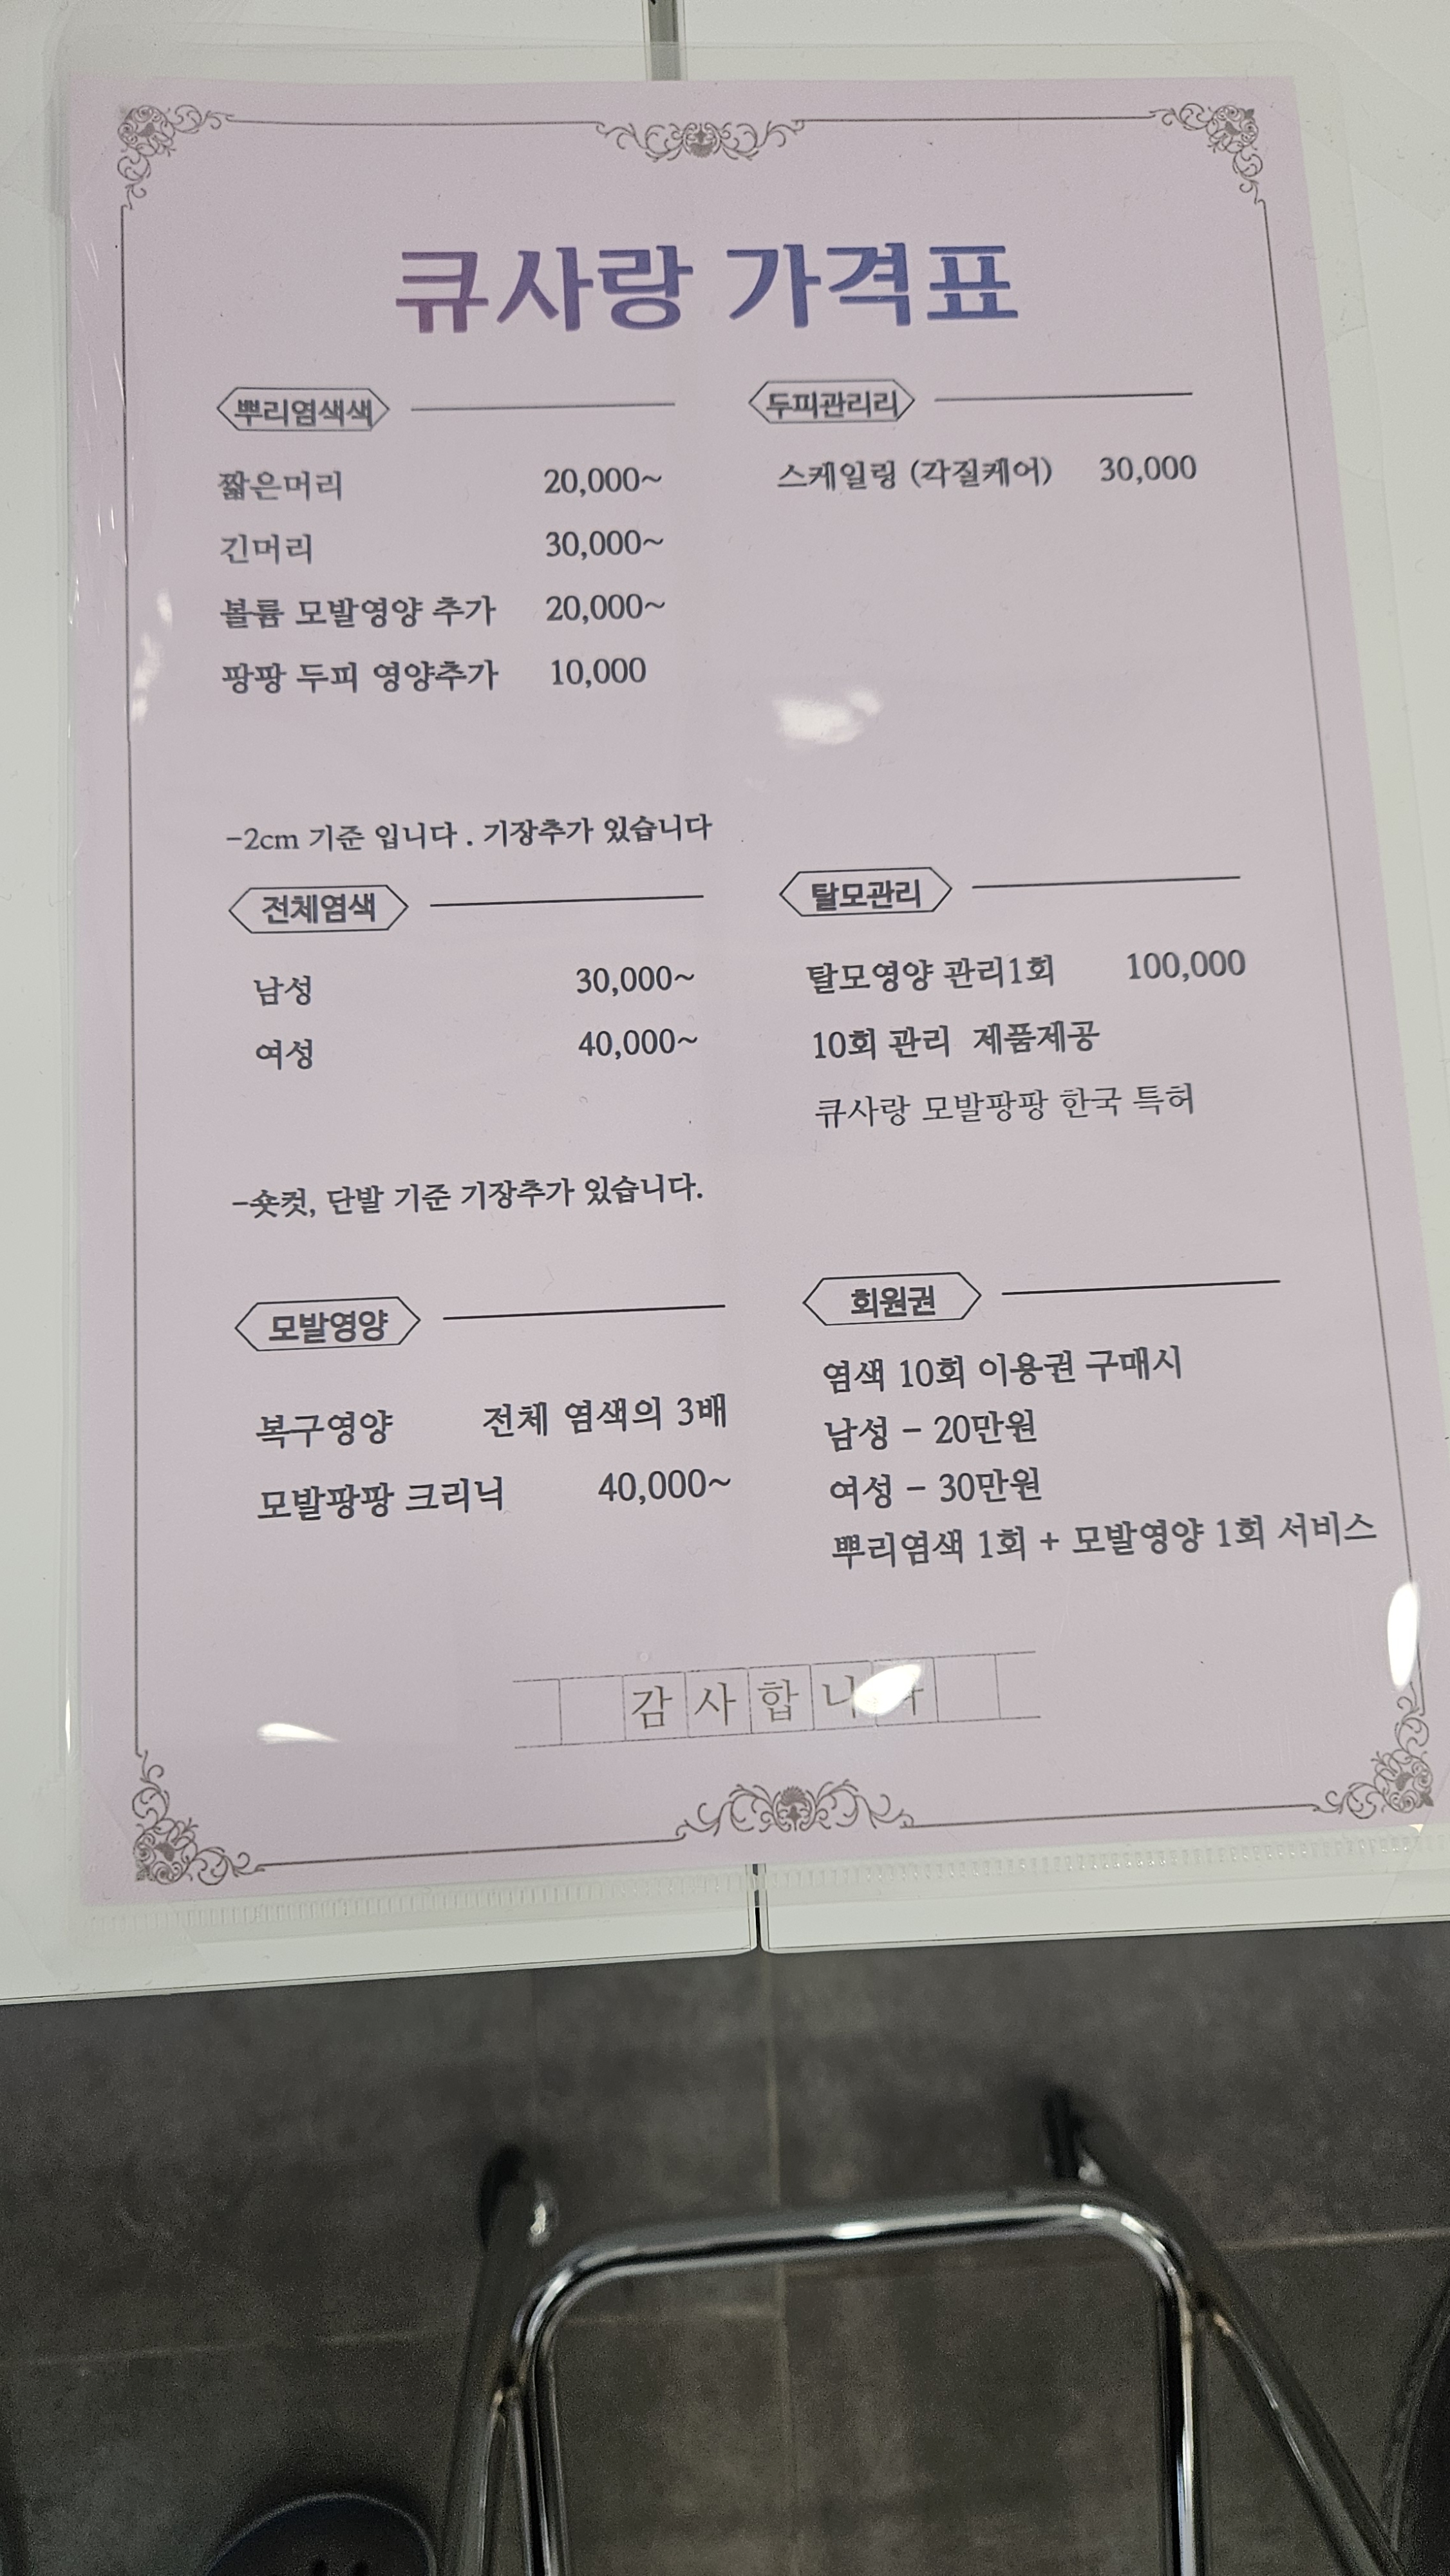 큐사랑 가격표
뿌리염색색
짧은머리 20,000~
긴머리 30,000~
볼륨 모발영양 추가 20,000~
팡팡 두피 영양추가 10,000
-2cm 기준 입니다 . 기장추가 있습니다
두피관리리
스케일링 (각질케어) 30,000
전체염색
남성 30,000~
여성 40,000~
-숏컷, 단발 기준 기장추가 있습니다.
탈모관리
탈모영양 관리1회 100,000
10회 관리 제품제공
큐사랑 모발팡팡 한국 특허
모발영양
복구영양 전체 염색의 3배
모발팡팡 크리닉 40,000~
회원권
염색 10회 이용권 구매시
남성 - 20만원
여성 - 30만원
뿌리염색 1회 + 모발영양 1회 서비스
감사합니다